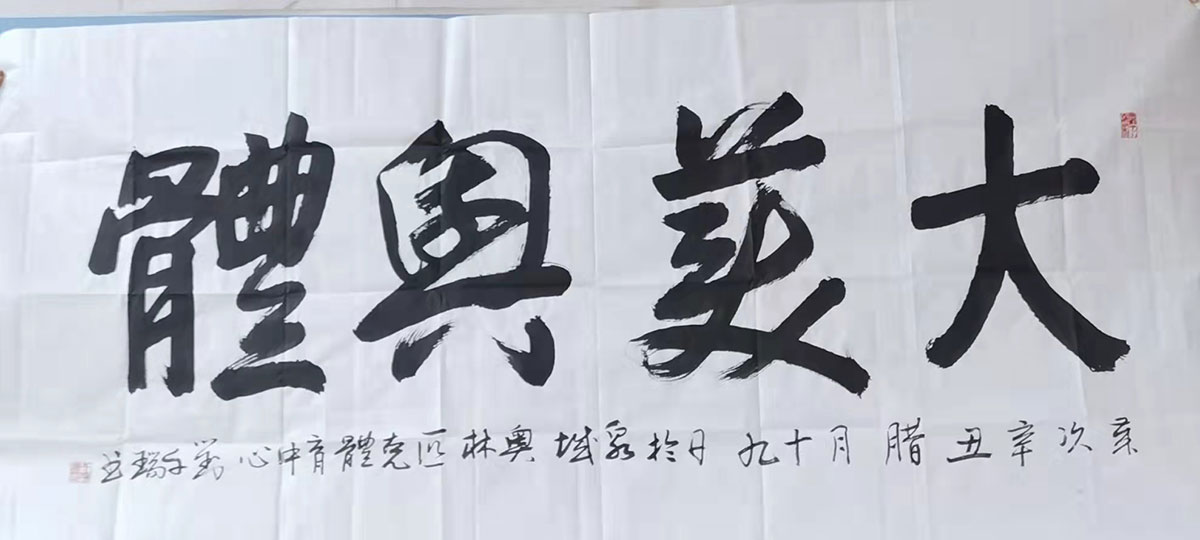 大美奧體
歲次辛丑腊月十九日於泉城奧林匹克體育中心